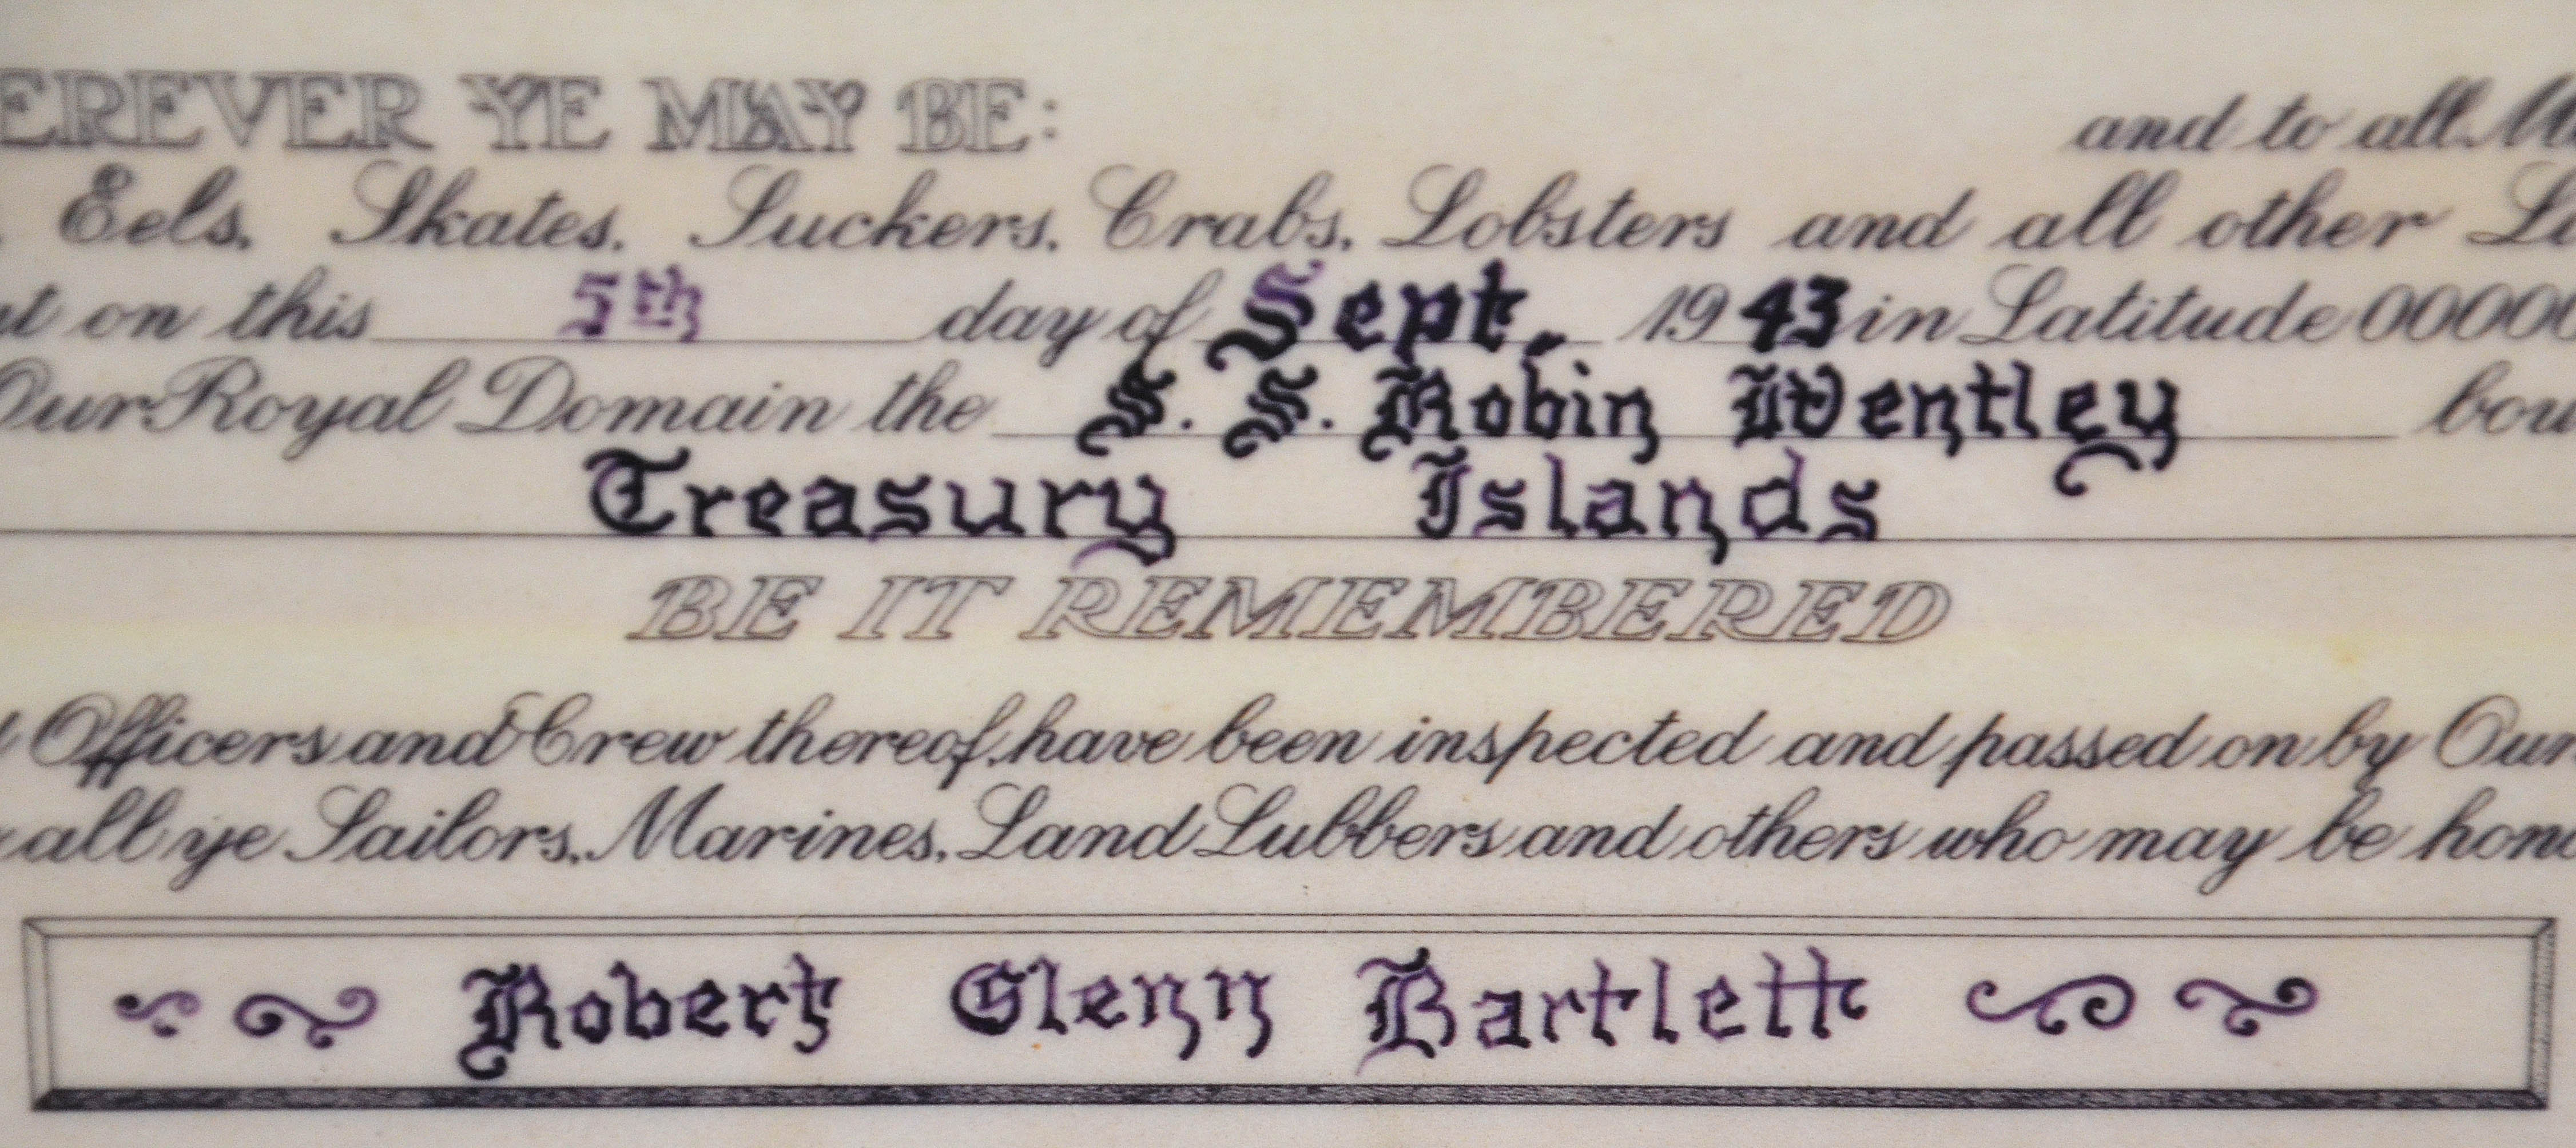 EREVER YE MAY BE: and to all M
Eels, Skates, Suckers, Crabs, Lobsters and all other Li
t on this 5th day of Sept. 1943 in Latitude 00000
Our Royal Domain the S. S. Robin Wentley bou
Treasury Islands
BE IT REMEMBERED
Officers and Crew thereof, have been inspected and passed on by Our
all ye Sailors, Marines, Land Lubbers and others who may be hono
Robert Glenn Bartlett